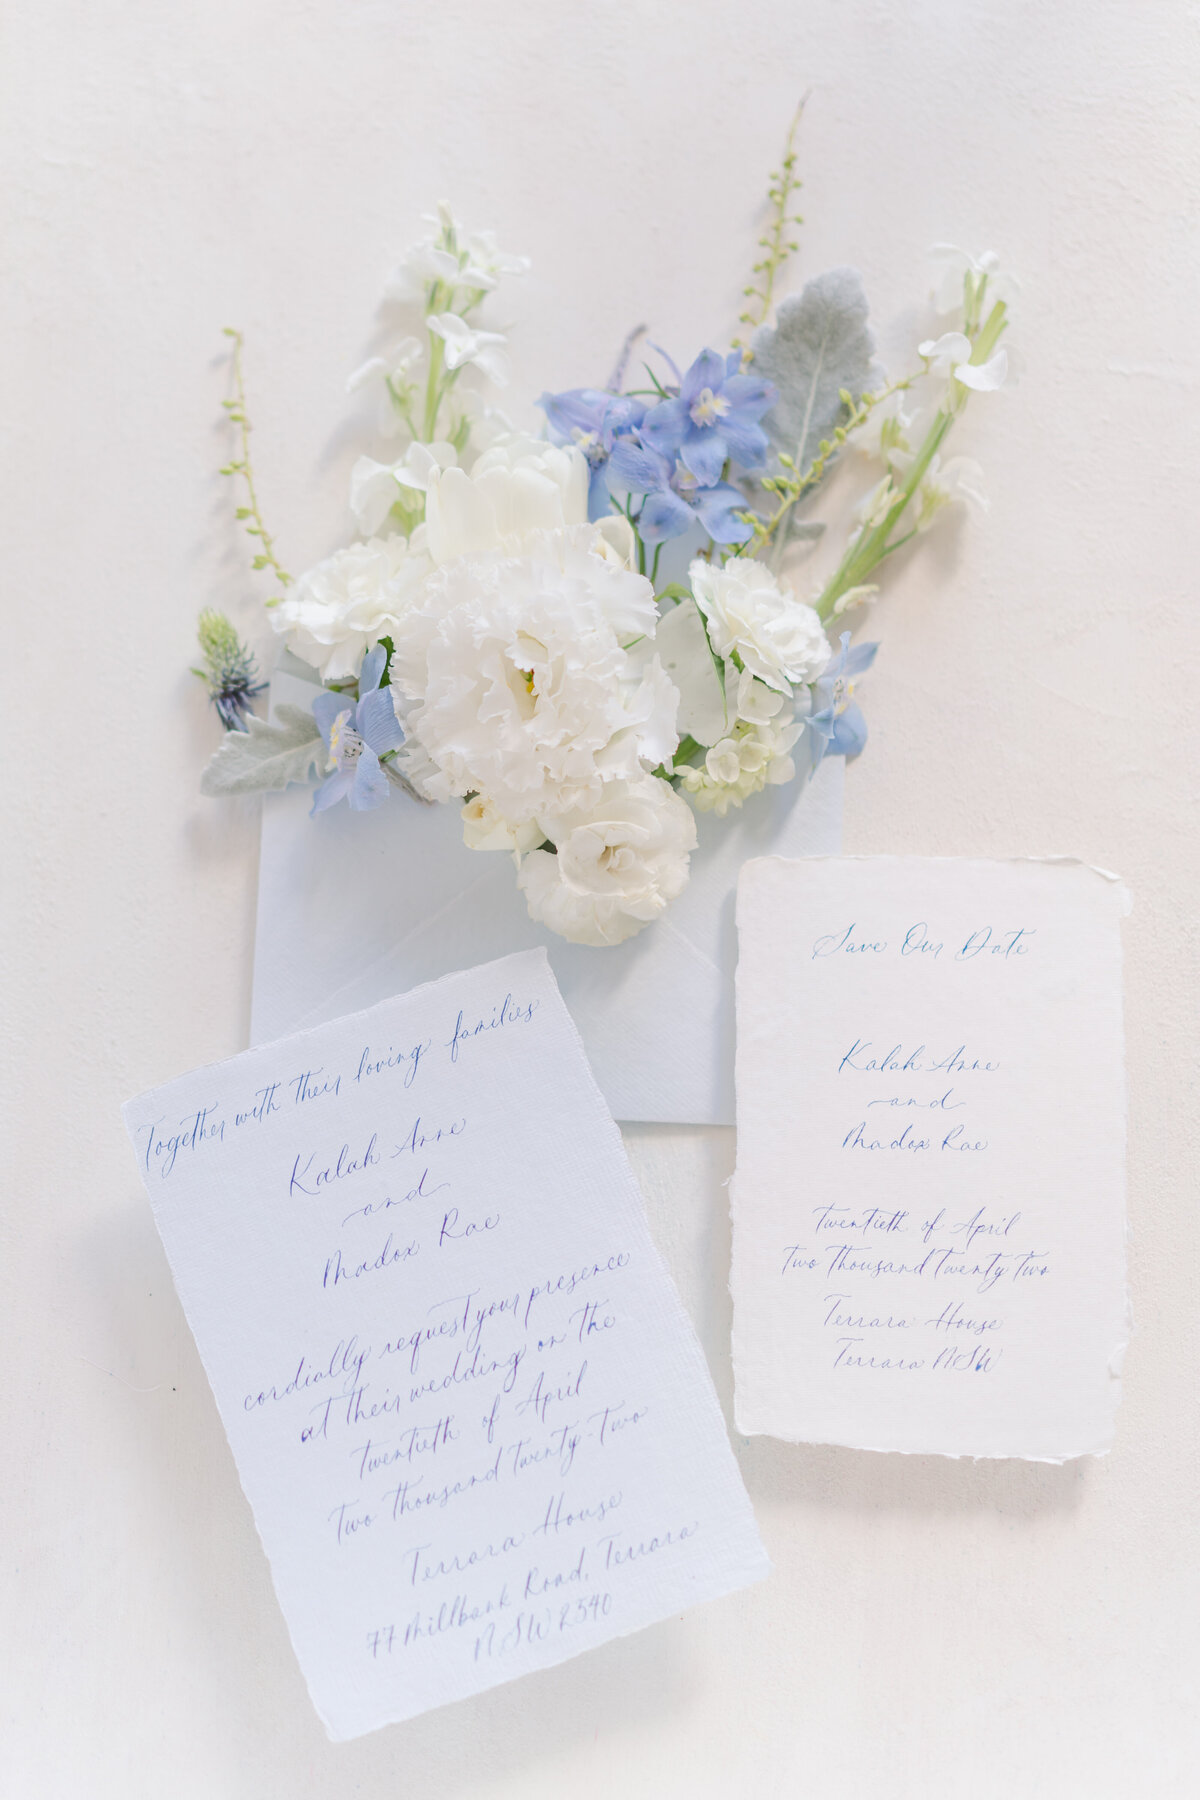 Together with their loving families
Kalah Anne
and
Madox Rae
cordially request your presence
at their wedding on the
twentieth of April
Two thousand Twenty-Two
Terrara House
77 Millbank Road, Terrara
NSW 2540
Save Our Date
Kalah Anne
and
Madox Rae
Twentieth of April
Two Thousand Twenty Two
Terrara House
Terrara NSW